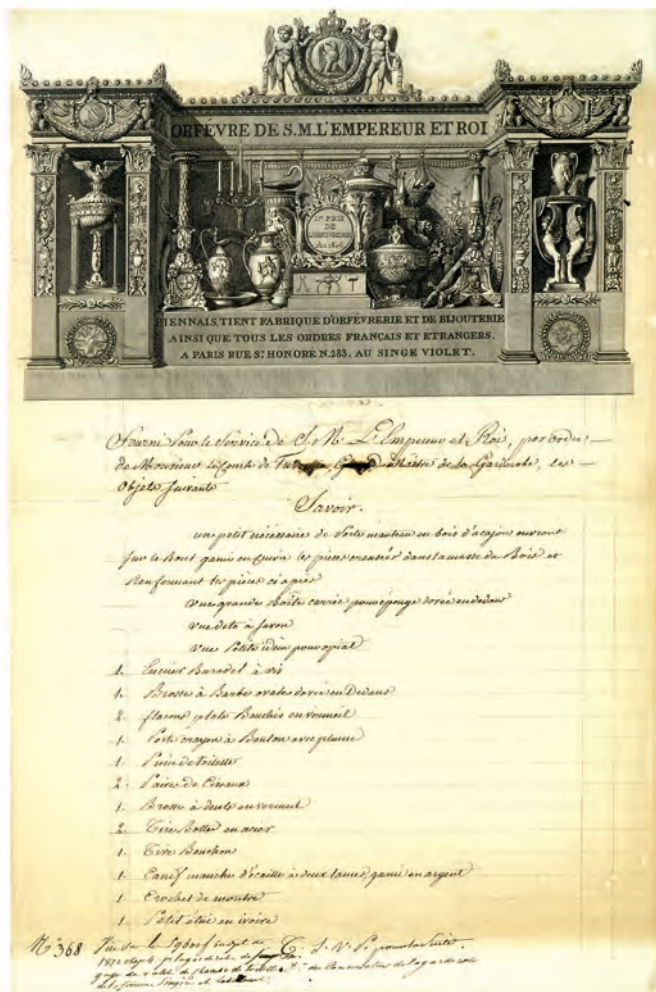 ORFEVRE DE S.M. L'EMPEREUR ET ROI
N
N
1er PRIX
DE
L'ORFEVRERIE
An 1806
BIENNAIS, TIENT FABRIQUE D'ORFÉVRERIE ET DE BIJOUTERIE
AINSI QUE TOUS LES ORDRES FRANÇAIS ET ETRANGERS.
A PARIS RUE St. HONORE N.283. AU SINGE VIOLET.
Fourni Pour le Service de S. M. L'Empereur et Roi, par ordre
de Monsieur le Comte de Grand Maître de la Garderobe, les
Objets Suivants
Savoir.
un petit nécessaire de Porte manteau en bois d'acajou ouvrant
sur le Bout garni en Cuivre les pièces dans la masse du Bois et
Renfermant les pièces ci après
une grande Boîte carrée pour éponge dorée en dedans
une dito à Savon
une Petite idem pour opiat
1. Encrier à vis
1. Brosse à Barbe ovale dorée en Dedans
2. flacons plats Bouchés en vermeil
1. Porte crayon à Bouton avec plume
1. de toilette
2. Paires de Ciseaux
1. Brosse à dents en vermeil
2. Tire Bottes en acier
1. Tire Bouchon
1. Canif manche d'écaille à deux lames, garni en argent
1. Crochet de montre
1. Petit étui en ivoire
No 368
T. S. V. P. pour la Suite.